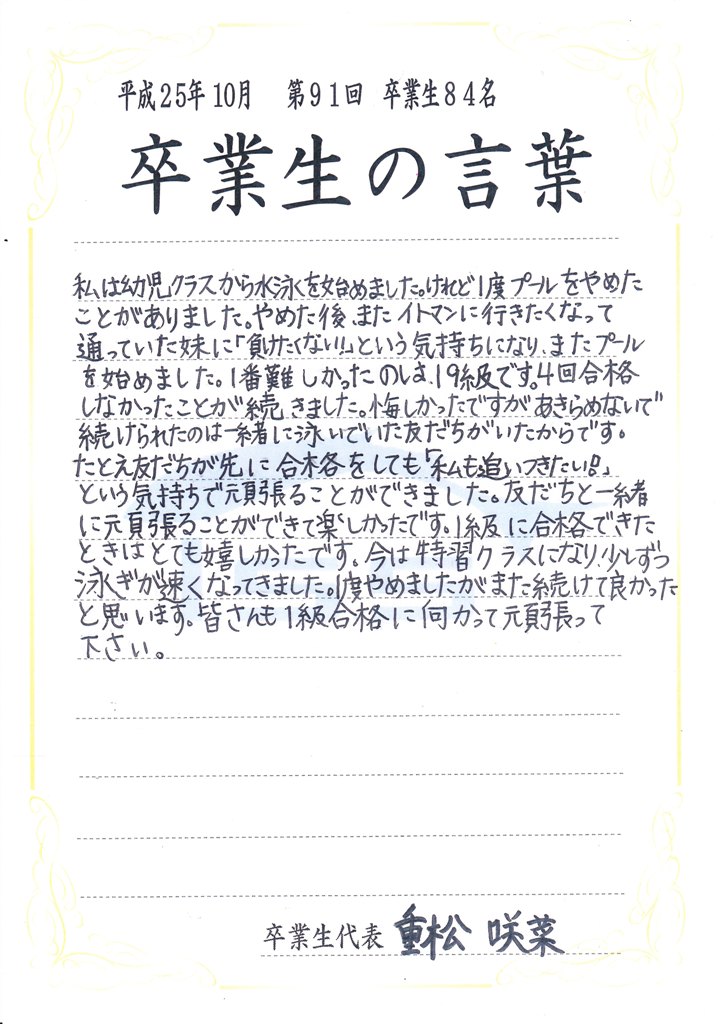 平成25年10月 第91回 卒業生84名
卒業生の言葉
私は幼児クラスから水泳を始めました。けれど1度プールをやめた
ことがありました。やめた後、またイトマンに行きたくなって
通っていた妹に「負けたくない!!」という気持ちになり、またプール
を始めました。1番難しかったのは、19級です。4回合格
しなかったことが続きました。悔しかったですがあきらめないで
続けられたのは一緒に泳いでいた友だちがいたからです。
たとえ友だちが先に合格をしても「私も追いつきたい!!」
という気持ちで頑張ることができました。友だちと一緒
に頑張ることができて楽しかったです。1級に合格できた
ときはとても嬉しかったです。今は特習クラスになり、少しずつ
泳ぎが速くなってきました。1度やめましたがまた続けて良かった
と思います。皆さんも1級合格に向かって頑張って
下さい。
卒業生代表 重松 咲菜